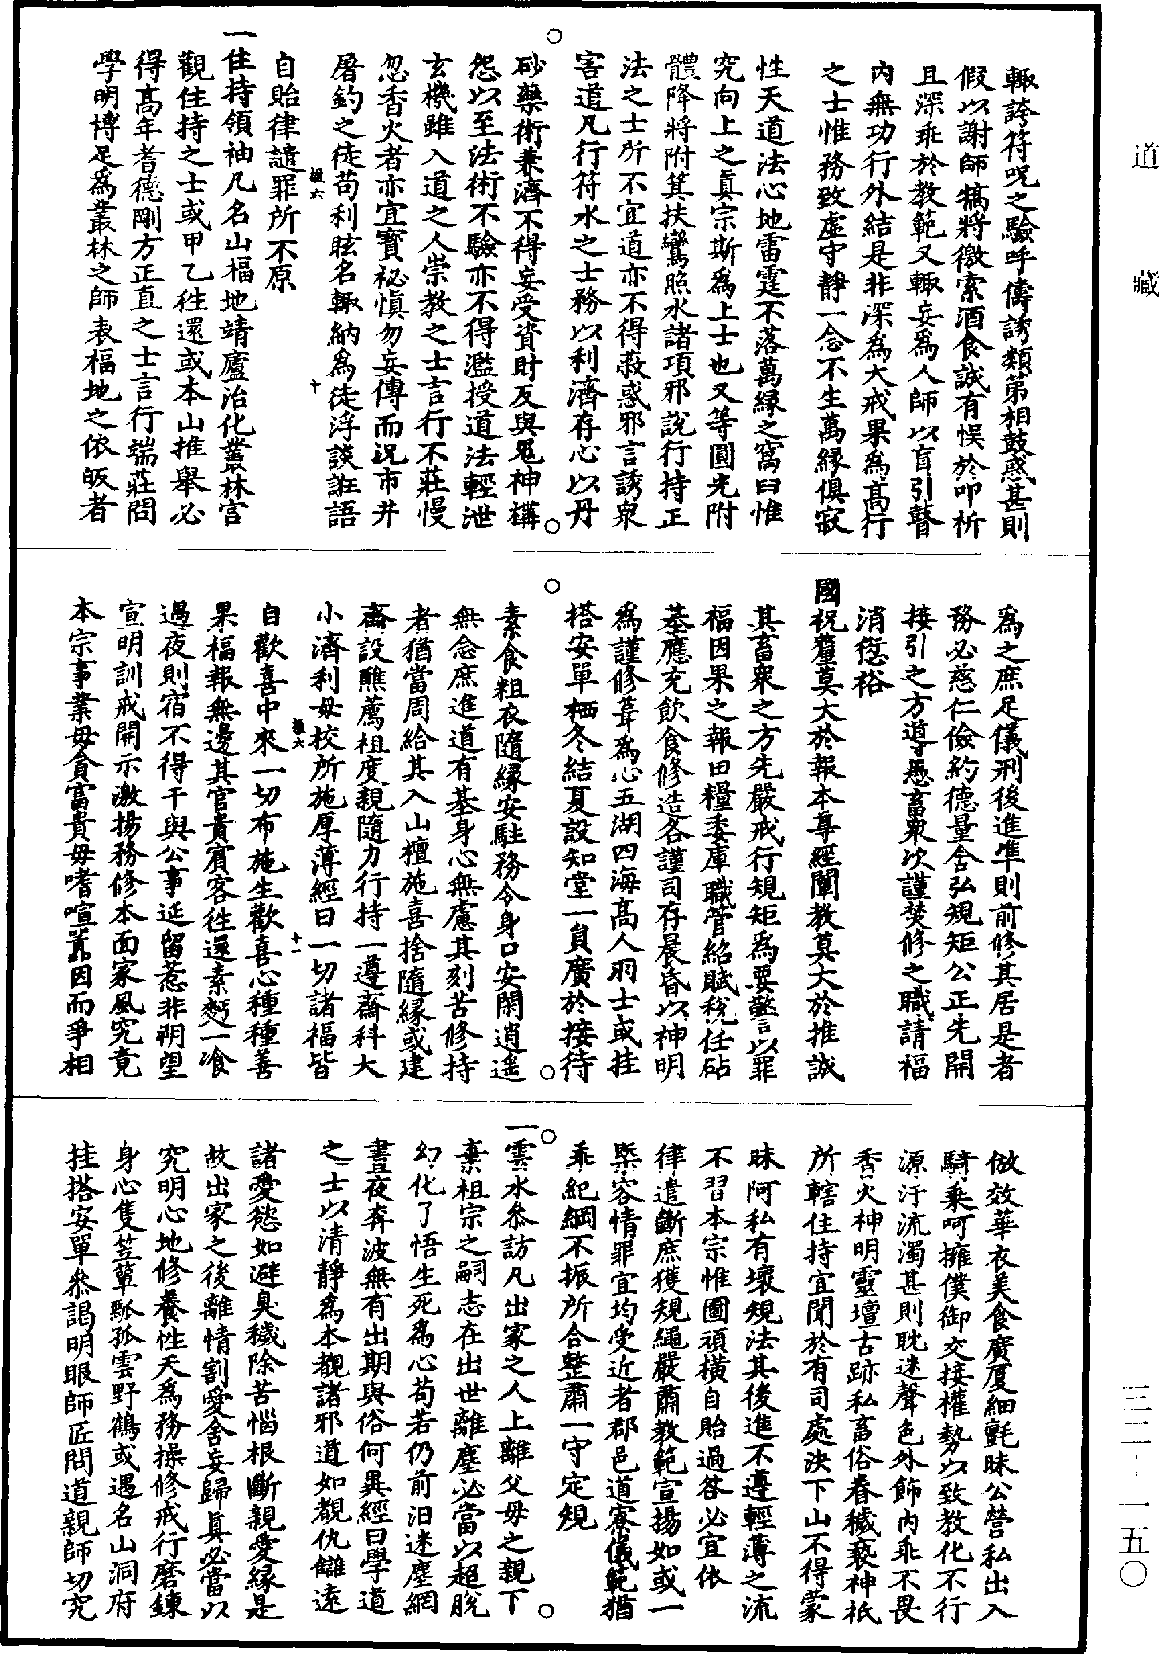 道藏
輙誇符呪之驗呼儔誘類第相鼓惑甚則
假以謝師犒將徵索酒食誠有悞於叩祈
且深乖於教範又輙妄爲人師以盲引瞽
內無功行外結是非深為大戒果為高行
之士惟務致虛守靜一念不生萬緣俱寂
性天道法心地雷霆不落萬緣之窩臼惟
究向上之眞宗斯爲上士也又等圓光附
體降將附箕扶鸞照水諸項邪說行持正
法之士所不宜道亦不得蔽惑邪言誘衆
害道凡行符水之士務以利濟存心以丹
砂藥術兼濟不得妄受資財反與鬼神構
怨以至法術不驗亦不得濫授道法輕泄
玄機雖入道之人崇教之士言行不莊慢
忽香火者亦宜寳祕慎勿妄傳而況市井
屠釣之徒苟利眩名輙納為徒浮談誑語
自貽律譴罪所不原
一住持領袖凡名山福地靖廬治化叢林宮
觀住持之士或甲乙往還或本山推舉必
得高年耆德剛方正直之士言行端莊問
學明博足爲叢林之師表福地之依皈者
爲之庶足儀刑後進準則前修其居是者
務必慈仁儉約德量含弘規矩公正先開
接引之方導愚畜衆次謹焚修之職請福
消愆裕
國祝釐莫大於報本尊經闡教莫大於推誠
其畜衆之方先嚴戒行規矩為要警以罪
福因果之報田糧委庫職管紹賦稅任砧
基應充飲食修造各謹司存晨昏以神明
爲謹修葺爲心五湖四海高人羽士或挂
搭安單栖冬結夏設知堂一員廣於接待
素食粗衣隨緣安駐務令身口安閑逍遥
無念庶進道有基身心無慮其刻苦修持
者猶當周給其入山檀施喜捨隨緣或建
齋設醮薦祖度親隨力行持一遵齋科大
小濟利毋校所施厚薄經曰一切諸福皆
自歡喜中來一切布施生歡喜心種種善
果福報無邊其官貴賓客往還素麪一飡
過夜則宿不得干與公事延留惹非朔望
宣明訓戒開示激揚務修本面家風究竟
本宗事業毋貪富貴毋嗜喧囂因而爭相
倣效華衣美食廣厦細氈昧公營私出入
騎乘呵擁僕御交接權勢以致教化不行
源汙流濁甚則耽迷聲色外飾內乖不畏
香火神明靈壇古跡私畜俗眷穢褻神祇
所轄住持宜聞於有司處決下山不得蒙
昧阿私有壞規法其後進不遵輕薄之流
不習本宗惟圖頑橫自貽過咎必宜依
律遣斷庶獲規繩嚴肅教範宣揚如或一
槩容情罪宜均受近者郡邑道寮儀範猶
乖紀綱不振所合整肅一守定規
一雲水參訪凡出家之人上離父母之親下
棄祖宗之嗣志在出世離塵必當以超脫
幻化了悟生死爲心苟若仍前汩迷塵網
晝夜奔波無有出期與俗何異經曰學道
之士以清靜爲本觀諸邪道如覩仇讎遠
諸愛慾如避臭穢除苦惱根斷親愛緣是
故出家之後離情割愛舍妄歸眞必當以
究明心地修養性天爲務操修戒行磨鍊
身心隻笠簞瓢孤雲野鶴或遇名山洞府
挂搭安單參謁明眼師匠問道親師切究
三二-一五〇